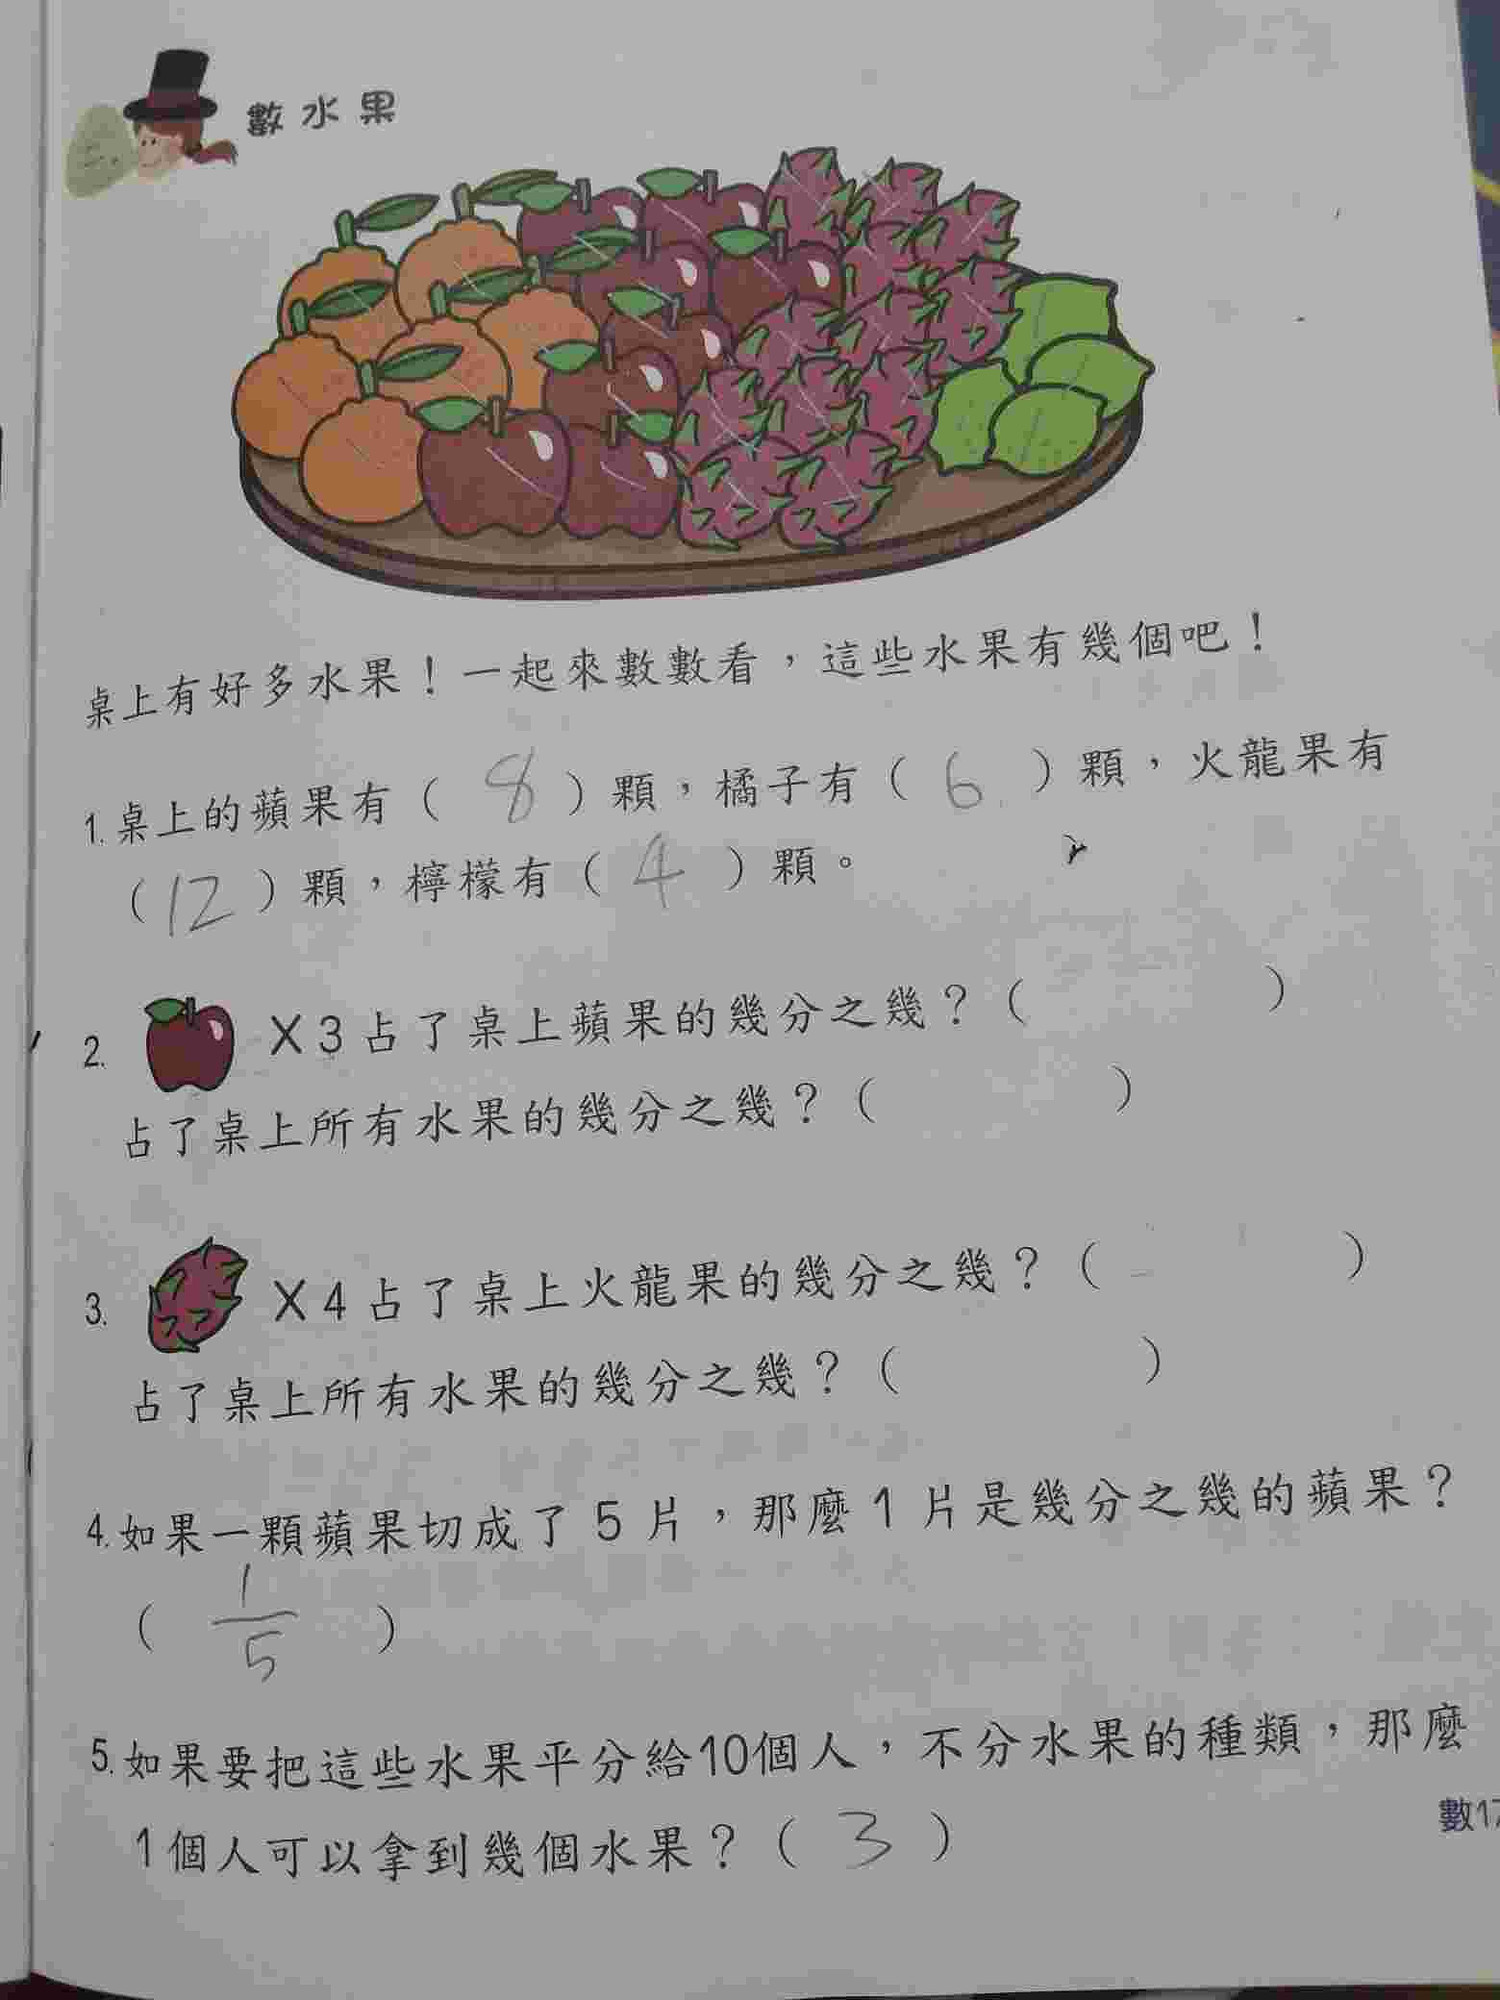 數水果
桌上有好多水果！一起來數數看，這些水果有幾個吧！
1.桌上的蘋果有（ 8 ）顆，橘子有（ 6 ）顆，火龍果有
（12）顆，檸檬有（ 4 ）顆。
2. X3占了桌上蘋果的幾分之幾？（ ）
占了桌上所有水果的幾分之幾？（ ）
3. X4占了桌上火龍果的幾分之幾？（ ）
占了桌上所有水果的幾分之幾？（ ）
4.如果一顆蘋果切成了5片，那麼1片是幾分之幾的蘋果？
（ 1/5 ）
5.如果要把這些水果平分給10個人，不分水果的種類，那麼
數17
1個人可以拿到幾個水果？（ 3 ）